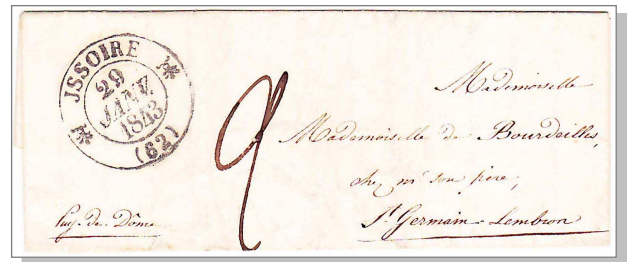 JSSOIRE
29
JANV.
1843
(62)
2
Mademoiselle
Mademoiselle de Bourdeilles,
chez mr son père,
St Germain-Lembron
Puy-de-Dôme